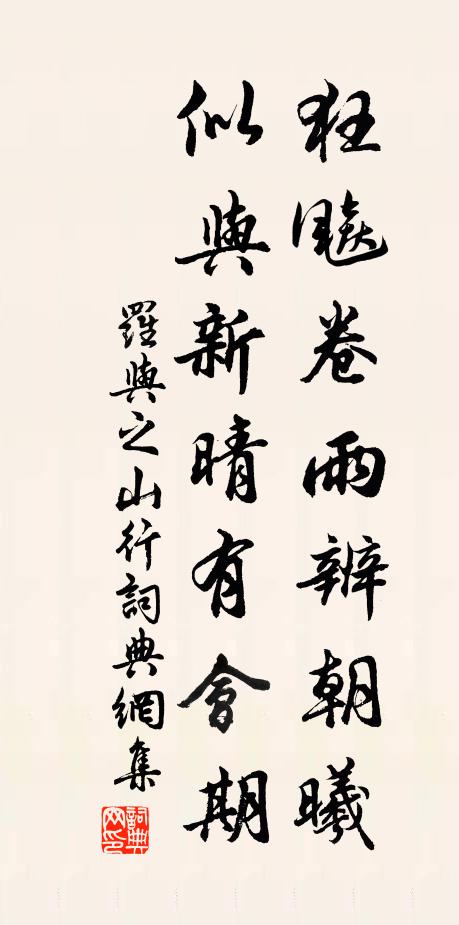 狂飈卷雨辨朝曦
似與新晴有會期
羅與之山行詞典網集
詞典網印